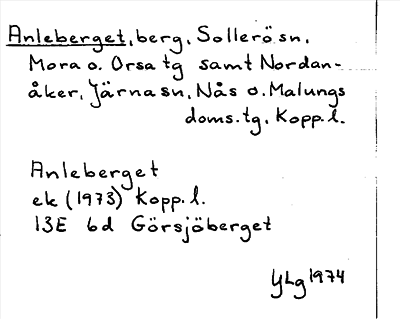 Anleberget, berg, Sollerö sn,
Mora o. Orsa tg samt Nordan-
åker, Järna sn, Nås o. Malungs
doms.tg, Kopp. l.
Anleberget
ek (1973) Kopp. l.
13E 6d Görsjöberget
YLg 1974